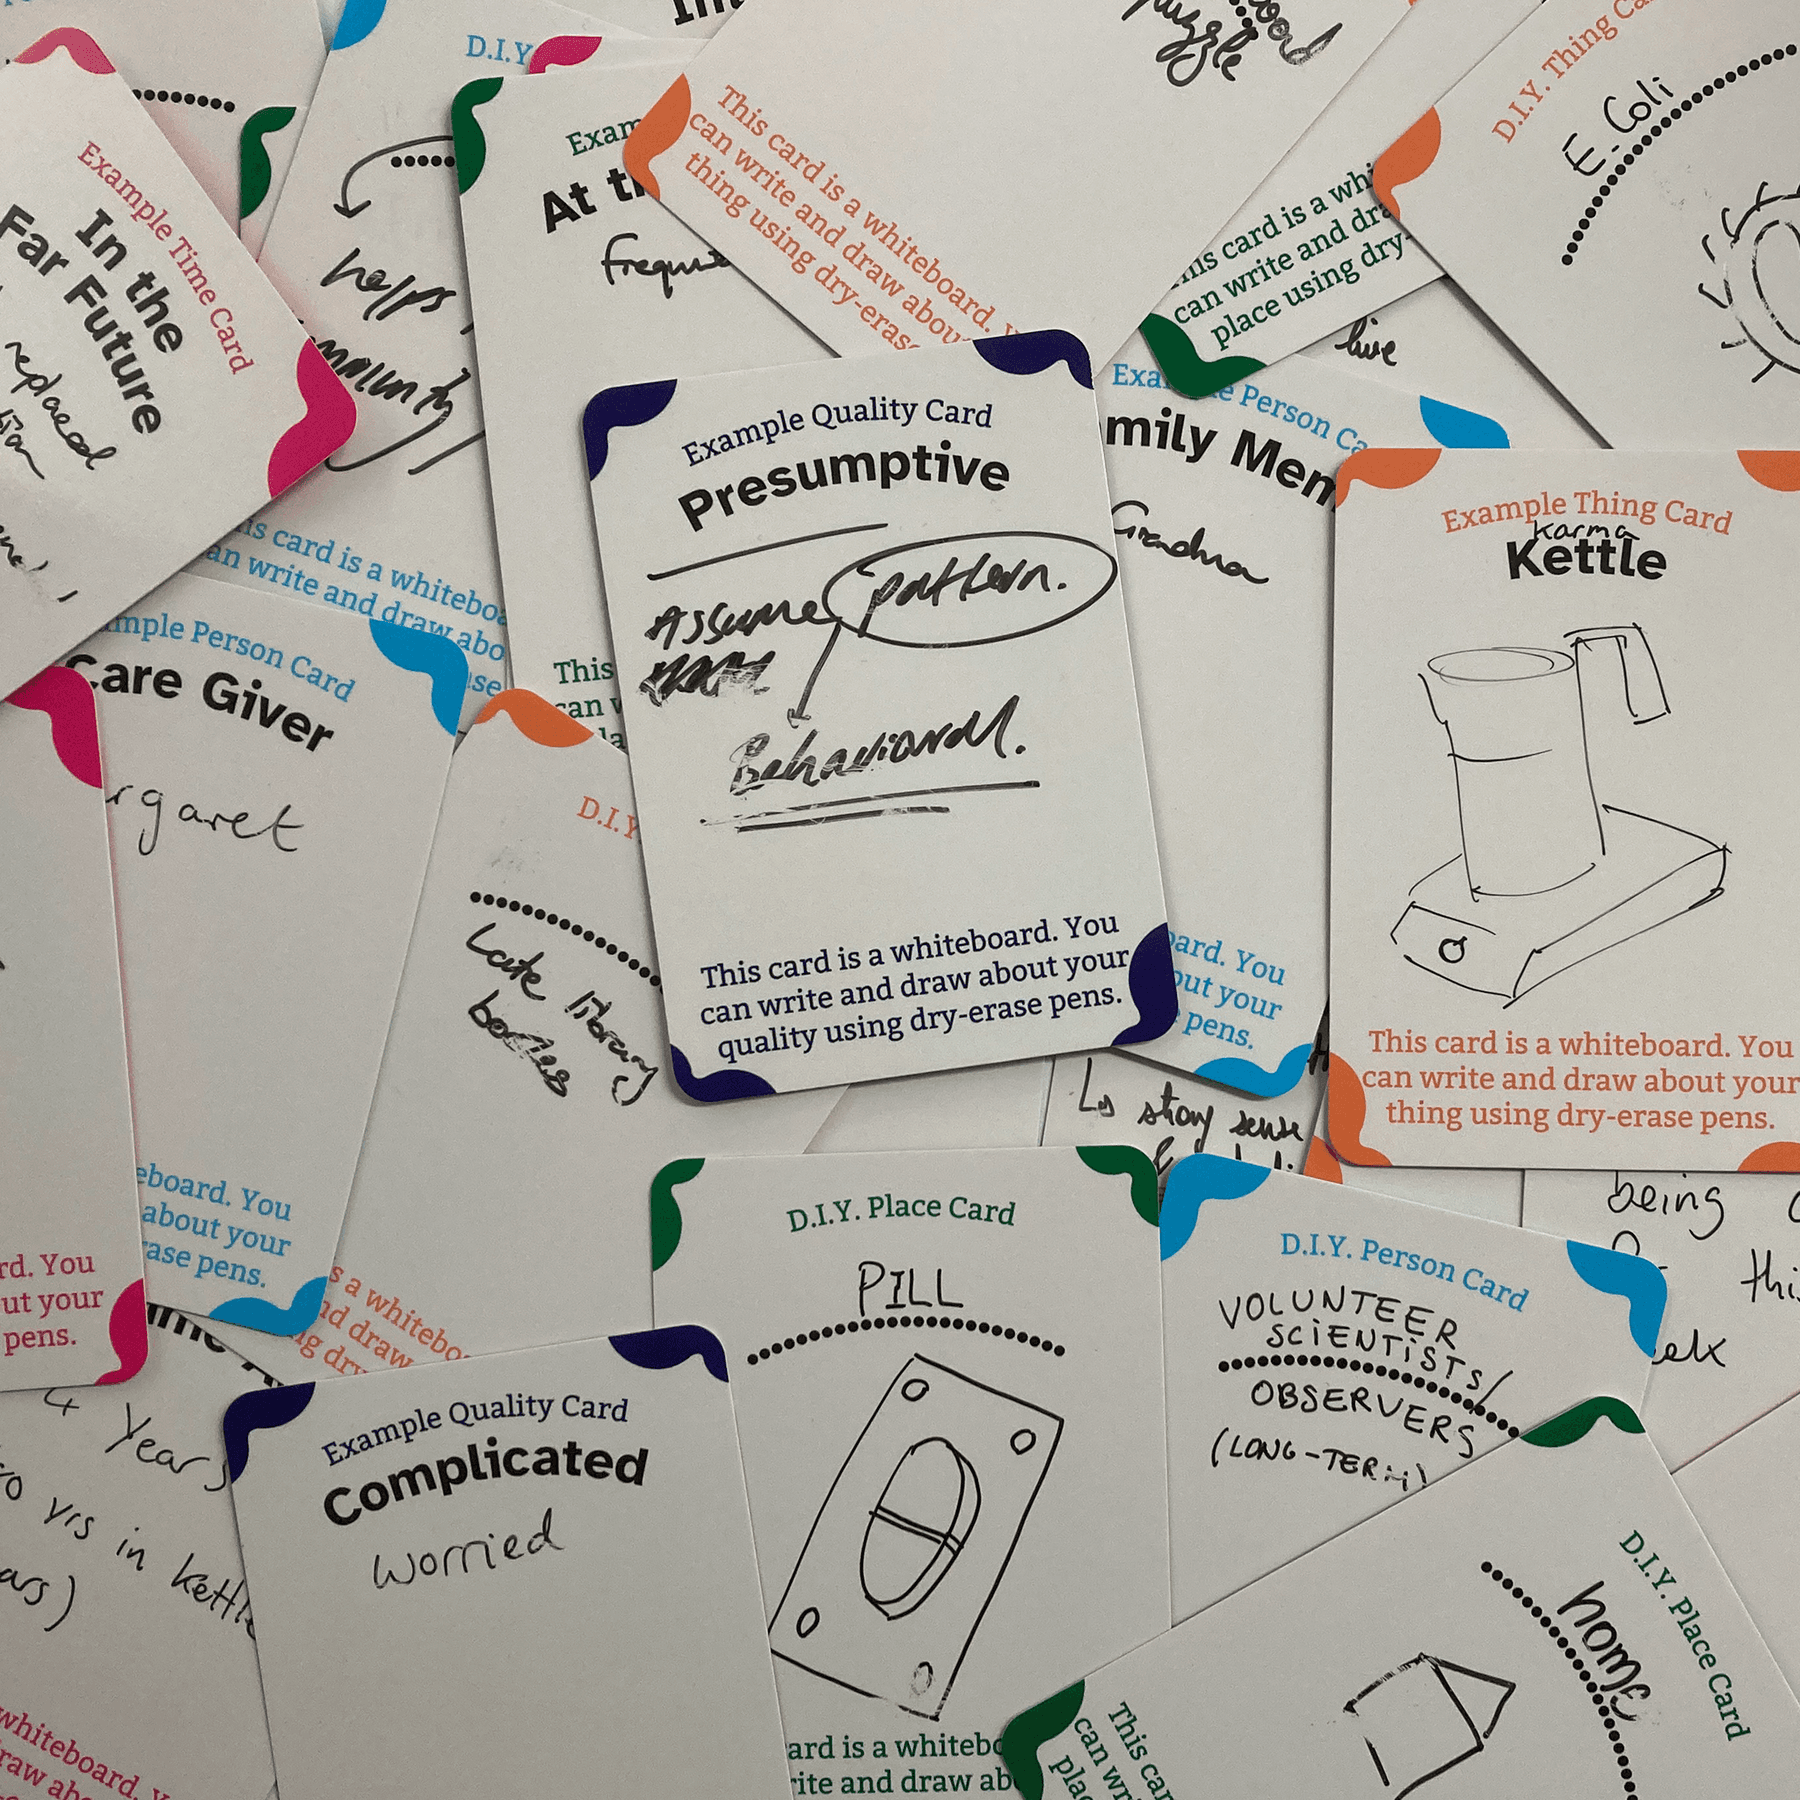 Example Time Card
In the
Far Future
replaced
D.I.Y.
helps
At th
frequ
puzzle
This card is a whiteboard.
can write and draw about
thing using dry-erase
This card is a whi
can write and dra
place using dry-
D.I.Y. Thing Ca
E. Coli
live
is card is a whiteboa
an write and draw abo
mple Person Card
Care Giver
rgaret
eboard. You
about your
rase pens.
This
can w
Example Quality Card
Presumptive
Assume pattern.
Behavioural.
This card is a whiteboard. You
can write and draw about your
quality using dry-erase pens.
Example Person Ca
mily Mem
Grandma
oard. You
out your
pens.
Example Thing Card
Karma
Kettle
This card is a whiteboard. You
can write and draw about your
thing using dry-erase pens.
D.I.Y
Late library
books
s a whitebo
nd draw
ng dry
strong sense
being
this
rd. You
ut your
pens.
Years
yrs in kettle
ars)
whiteboard.
raw ab
Example Quality Card
Complicated
worried
D.I.Y. Place Card
PILL
ard is a whitebo
rite and draw ab
D.I.Y. Person Card
VOLUNTEER
SCIENTISTS/
OBSERVERS
(LONG-TERM)
D.I.Y. Place Card
home
This car
can wri
plac